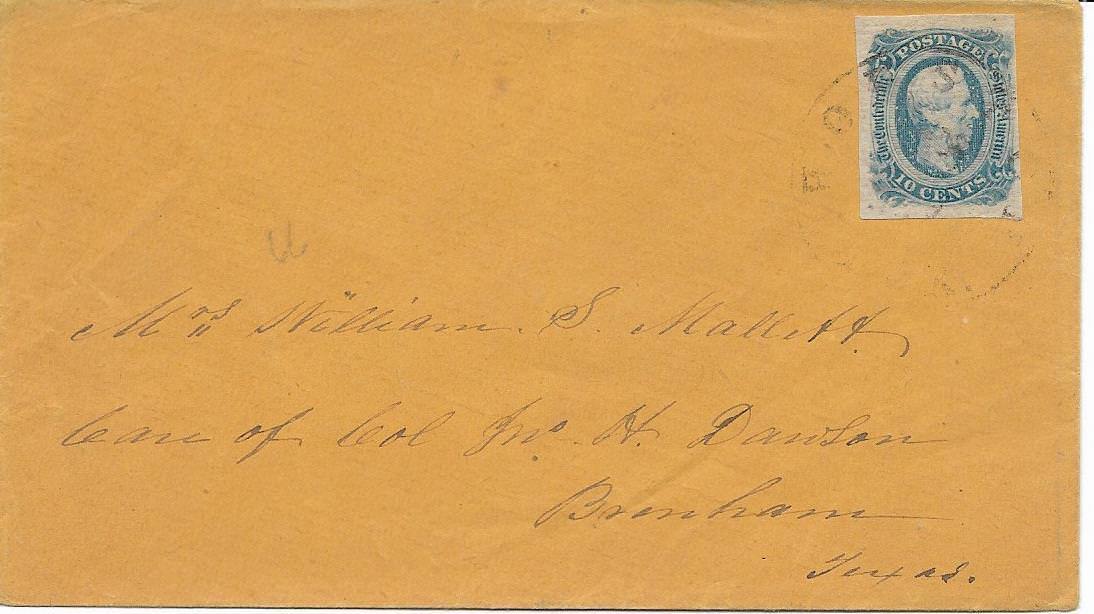 POSTAGE
The Confederate States of America
10 CENTS
Mrs William S. Mallett
Care of Col Jno. H. Dawson
Brenham
Texas.